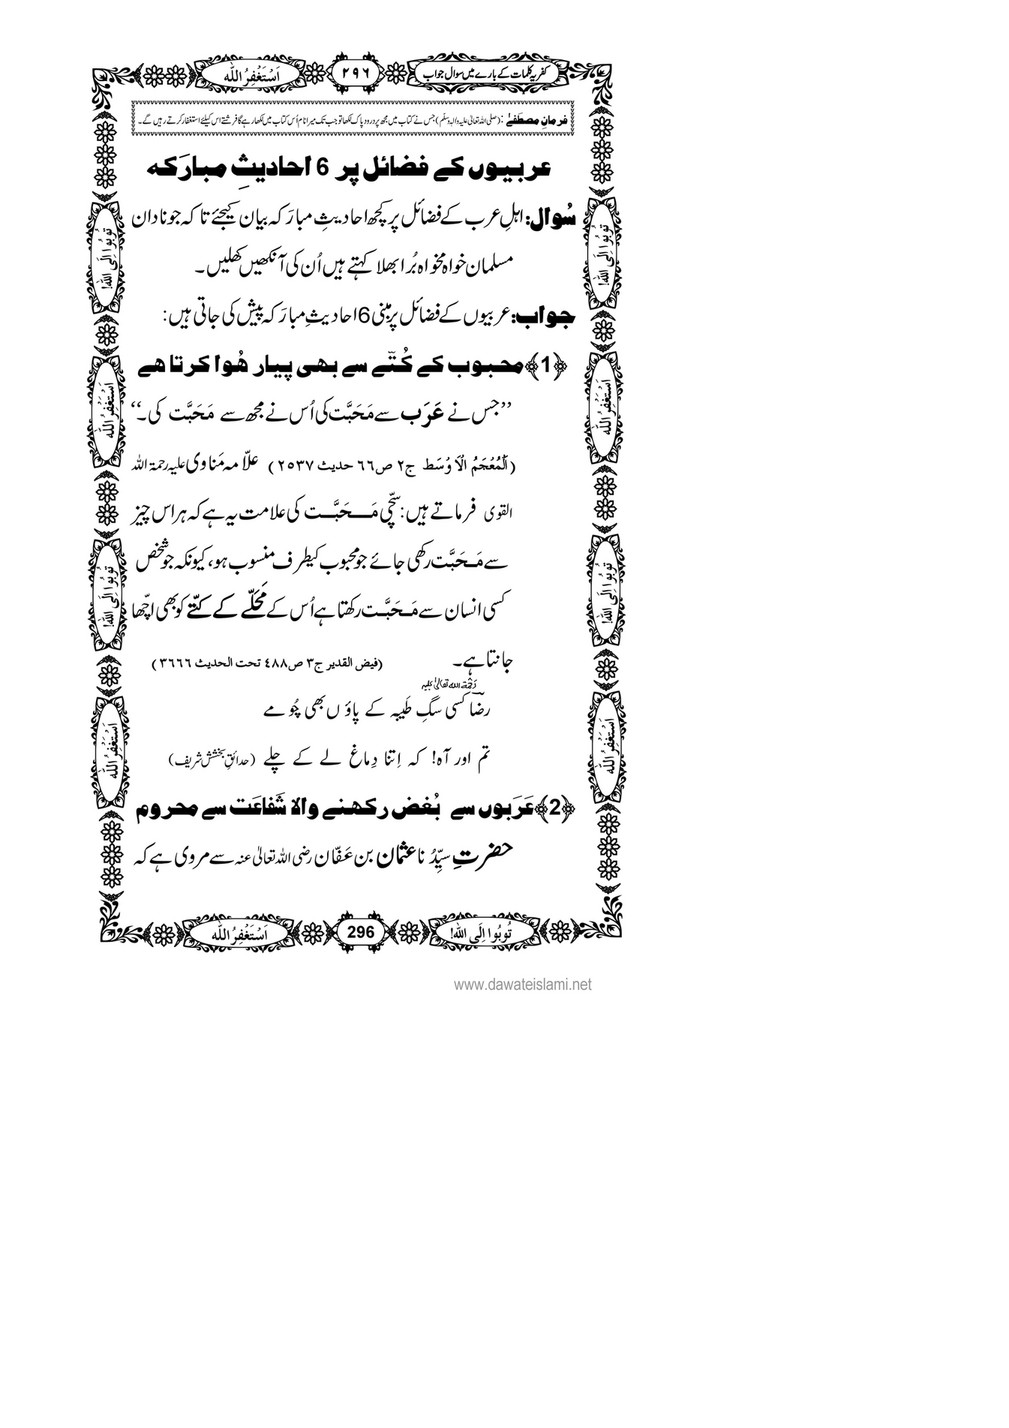 کفریہ کلمات کے بارے میں سوال جواب ۲۹۶ اَسْتَغْفِرُاللّٰه
فرمانِ مصطَفٰے : (صلی اللہ تعالیٰ علیہ والہ وسلّم) جس نے کتاب میں مجھ پر درود پاک لکھا تو جب تک میرا نام اُس کتاب میں لکھا رہے گا فرشتے اس کیلئے استغفار کرتے رہیں گے۔
عربیوں کے فضائل پر 6 احادیثِ مبارَکہ
سُوال: اہلِ عرب کے فضائل پر کچھ احادیثِ مبارَکہ بیان کیجئے تاکہ جو نادان
مسلمان خواہ مخواہ بُرا بھلا کہتے ہیں اُن کی آنکھیں کھلیں۔
جواب: عربیوں کے فضائل پر مبنی 6 احادیثِ مبارَکہ پیش کی جاتی ہیں:
﴿1﴾ محبوب کے کُتّے سے بھی پیار ھُوا کرتا ھے
’’جس نے عَرَب سے مَحَبَّت کی اُس نے مجھ سے مَحَبَّت کی۔‘‘
(اَلْمُعْجَمُ الْاَ وْسَط ج۲ ص۶۶ حدیث ۲۵۳۷) علّامہ مَناوی علیہ رحمۃ اللہ
القوی فرماتے ہیں: سچّی مَـحَبَّـت کی علامت یہ ہے کہ ہر اس چیز
سے مَـحَبَّت رکھی جائے جو محبوب کیطرف منسوب ہو، کیونکہ جو شخص
کسی انسان سے مَـحَبَّـت رکھتا ہے اُس کے مَحَلّے کے کتّے کو بھی اچّھا
جانتا ہے۔ (فیض القدیر ج۳ ص۴۸۸ تحت الحدیث ۳۶۶۶)
رَحْمَۃُ اللہِ تعالیٰ علیہ
رضاؔ کسی سگِ طَیبہ کے پاؤں بھی چُومے
تم اور آہ! کہ اِتنا دِماغ لے کے چلے (حدائقِ بخشش شریف)
﴿2﴾ عَرَبوں سے بُغض رکھنے والا شَفاعَت سے محروم
حضرتِ سیِّدُنا عثمان بن عَفّان رضی اللہ تعالیٰ عنہ سے مروی ہے کہ
تُوبُوا اِلَی اللّٰه! 296 اَسْتَغْفِرُاللّٰه
تُوبُوا اِلَی اللّٰه!
اَسْتَغْفِرُاللّٰه
تُوبُوا اِلَی اللّٰه!
اَسْتَغْفِرُاللّٰه
تُوبُوا اِلَی اللّٰه!
اَسْتَغْفِرُاللّٰه
تُوبُوا اِلَی اللّٰه!
اَسْتَغْفِرُاللّٰه
www.dawateislami.net